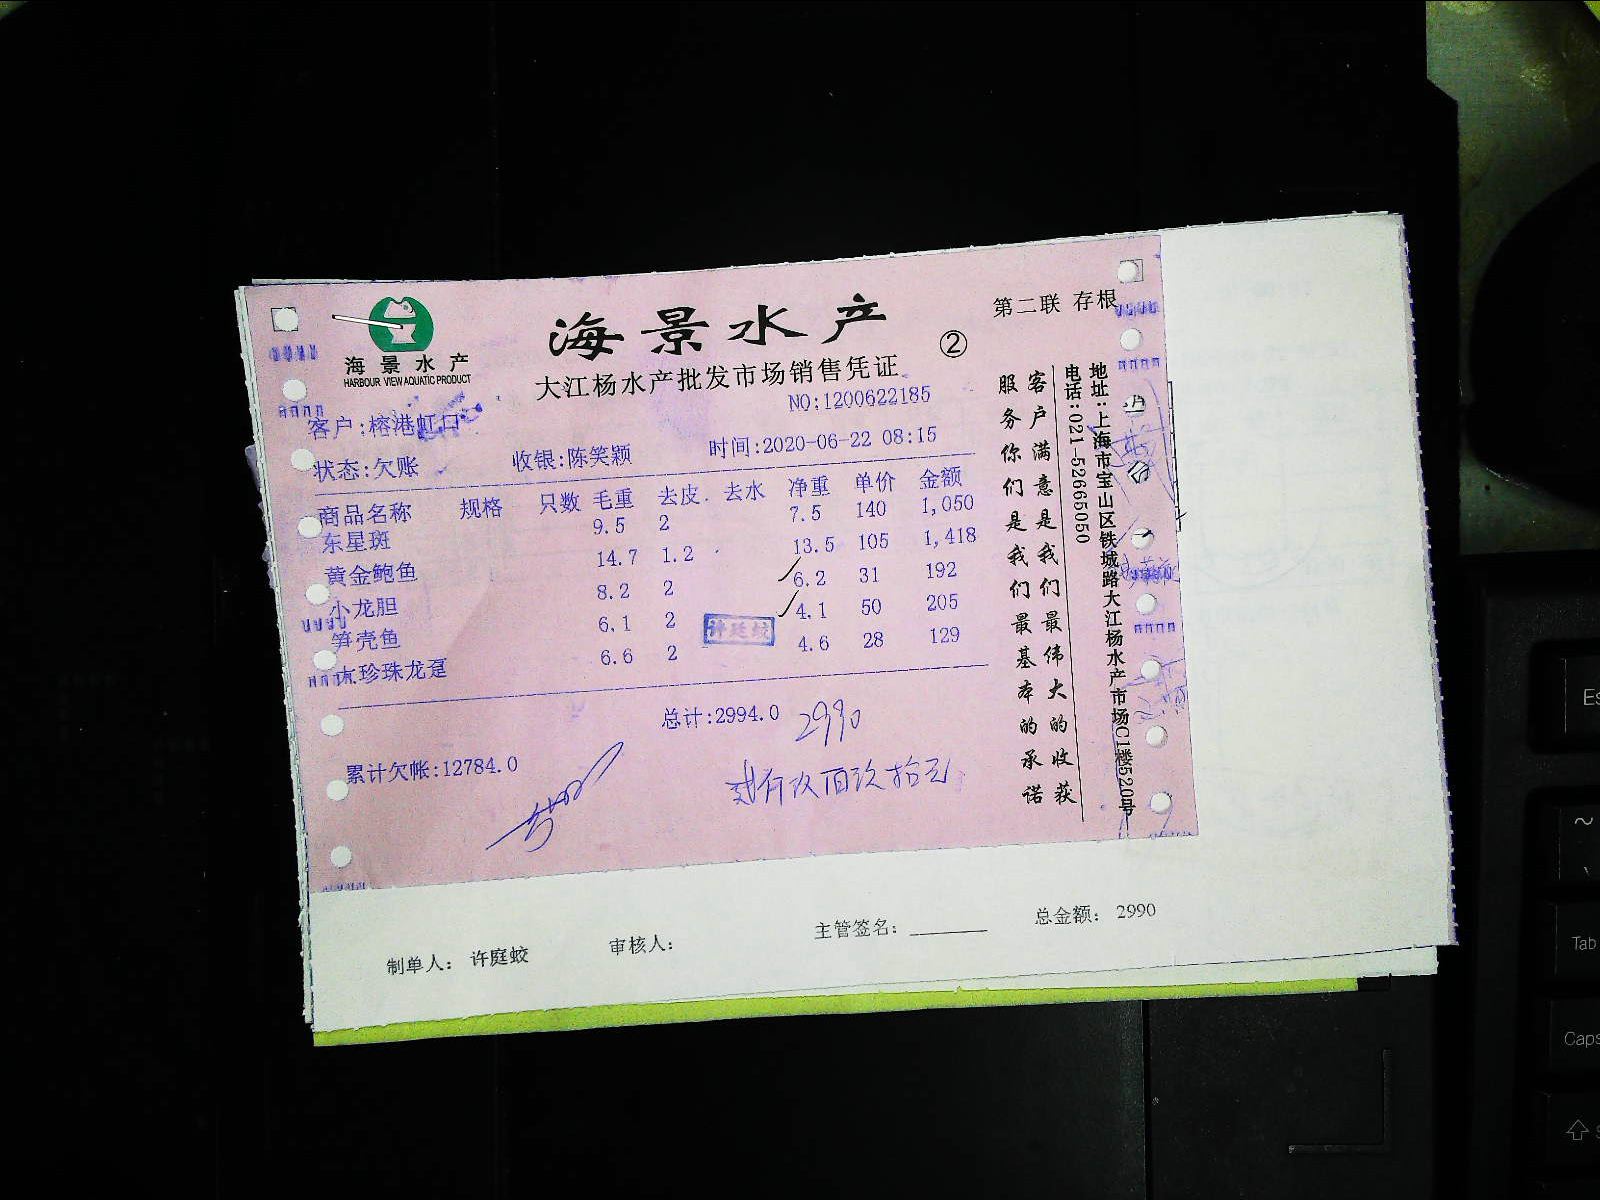 海景水产
HARBOUR VIEW AQUATIC PRODUCT
海景水产
大江杨水产批发市场销售凭证
②
第二联 存根
NO:1200622185
客户:榕港虹口
状态:欠账 收银:陈笑颖 时间:2020-06-22 08:15
商品名称 规格 只数 毛重 去皮 去水 净重 单价 金额
东星斑 9.5 2 7.5 140 1,050
黄金鲍鱼 14.7 1.2 13.5 105 1,418
小龙胆 8.2 2 6.2 31 192
笋壳鱼 6.1 2 4.1 50 205
大珍珠龙趸 6.6 2 4.6 28 129
许庭蛟
总计:2994.0 2990
累计欠帐:12784.0
贰仟玖佰玖拾元
客户满意是我们最伟大的收获
服务你们是我们最基本的承诺
地址:上海市宝山区铁城路大江杨水产市场C1楼520号
电话:021-52665050
制单人: 许庭蛟 审核人: 主管签名: 总金额: 2990
Es
~
Tab
Caps